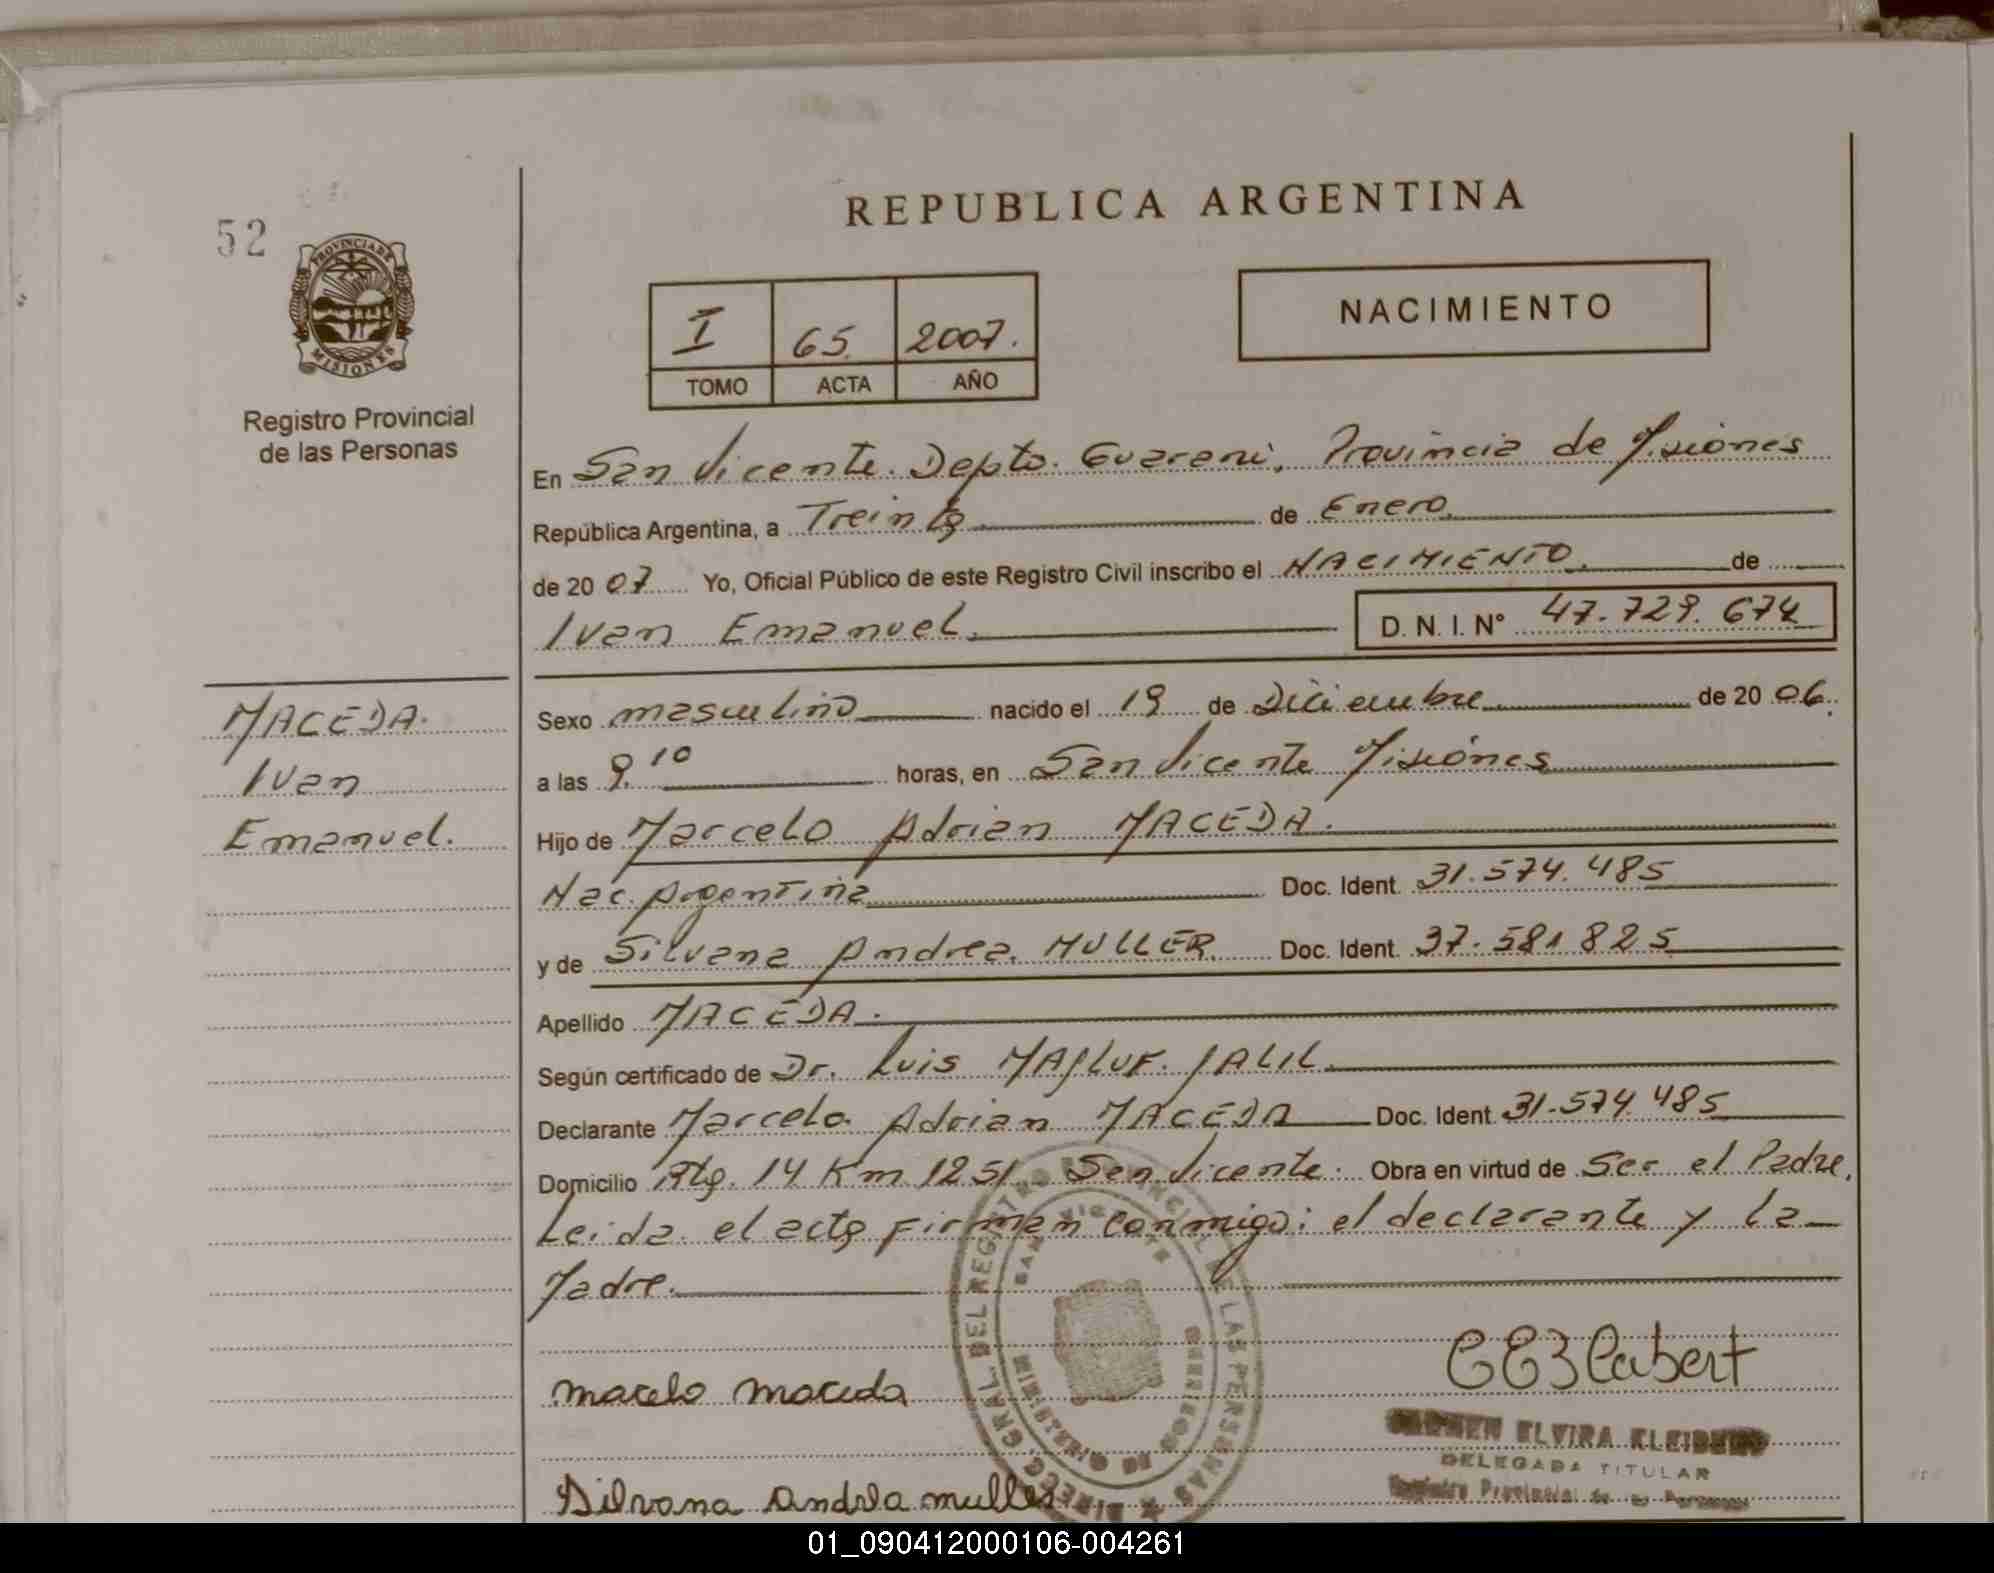 REPUBLICA ARGENTINA
52
PROVINCIA DE
MISIONES
Registro Provincial
de las Personas
I 65. 2007.
TOMO ACTA AÑO
NACIMIENTO
En San Vicente. Depto. Guarani, Provincia de Misiónes
República Argentina, a Treinta de Enero.
de 20 07 Yo, Oficial Público de este Registro Civil inscribo el NACIMIENTO. de
Ivan Emanuel. D. N. I. Nº 47.729.674
MACEDA.
Ivan
Emanuel.
Sexo masculino nacido el 19 de Diciembre de 20 06.
a las 9.10 horas, en San Vicente Misiónes
Hijo de Marcelo Adrian MACEDA.
Nac. Argentina Doc. Ident. 31.574.485
y de Silvana Andrea. MULLER. Doc. Ident. 37.581825
Apellido MACEDA.
Según certificado de Dr. Luis MAJLUF. JALIL
Declarante Marcelo Adrian MACEDA Doc. Ident. 31.574.485
Domicilio Rta. 14 Km 1251 San Vicente. Obra en virtud de Ser el Padre,
Leida el acta firman conmigo: el declarante y la
Madre.
DIREC. GRAL. DEL REGISTRO CIVIL DE LAS PERSONAS
SAN VICENTE
marcelo maceda
CARMEN ELVIRA
DELEGADA TITULAR
Registro Provincial de las Personas
Silvana Andrea muller
01_090412000106-004261